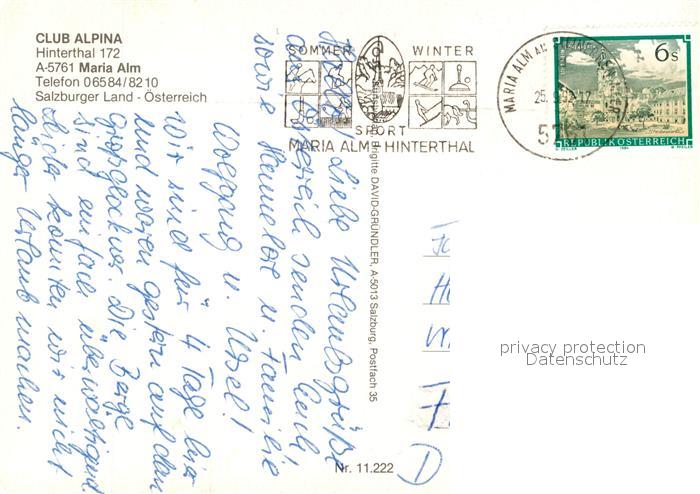 CLUB ALPINA
Hinterthal 172
A-5761 Maria Alm
Telefon 06584/8210
Salzburger Land - Österreich
SOMMER WINTER
SPORT
MARIA ALM - HINTERTHAL
MARIA ALM AM
25. 9. 17
57
6 S
REPUBLIK ÖSTERREICH
Brigitte DAVID-GRÜNDLER, A-5013 Salzburg, Postfach 35
Liebe Urlaubsgrüße
senden Euch
sowie Hannelore u. Familie
Wolfgang u. Ursel!
Wir sind für 4 Tage hier
und waren gestern auf dem
Großglockner. Die Berge
sind einfach überwältigend.
Leider konnten wir nicht
länger Urlaub machen.
Nr. 11.222
privacy protection
Datenschutz